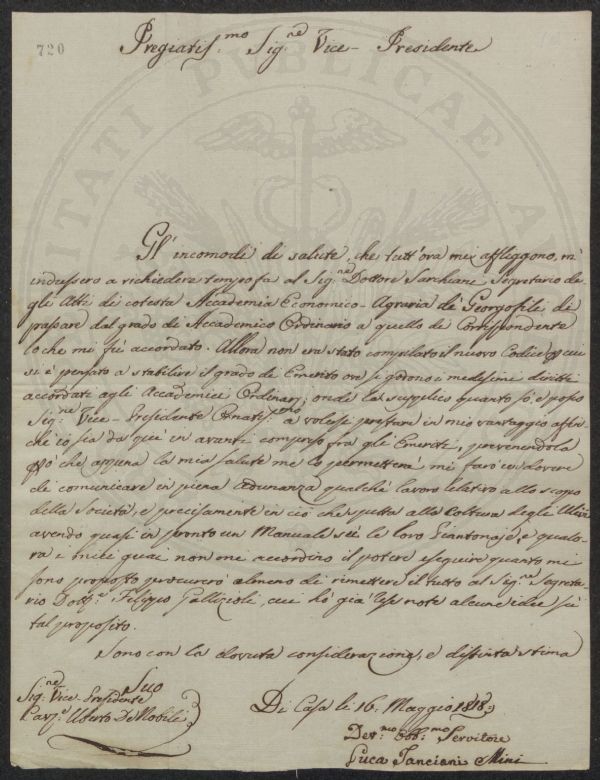 720
Pregiatis.mo Sig.re Vice-Presidente
PUBLICAE
Gl' incomodi di salute, che tutt' ora mi affliggono, m'
indussero a richiedere tempo fa al Sig.re Dottore Sarchiani Segretario de
gli Atti di cotesta Accademia Economico-Agraria de' Georgofili di
passare dal grado di Accademico Ordinario a quello di Corrispondente
lo che mi fù accordato. Allora non era stato compilato il nuovo Codice, p cui
si è pensato a stabilire il grado di Emerito ove si godono i medesimi diritti
accordati agli Accademici Ordinarj; onde La supplico quanto sò, e posso
Sig.re Vice-Presidente Ornatis.mo a volersi prestare in mio vantaggio affin-
chè io sia da quì in avanti compreso fra gli Emeriti, prevenendola
che appena la mia salute me lo permetterà mi farò un dovere
di comunicare in piena adunanza qualche lavoro relativo allo scopo
della Società, e precisamente in ciò che spetta alla Coltura degli Ulivi
avendo quasi in pronto un Manuale sù le loro Piantonaje, e qualo-
ra i miei guai non mi accordino il potere eseguire quanto mi
sono proposto procurerò almeno di rimettere il tutto al Sig.re Segreta-
rio Dott.e Filippo Gallizioli, cui hò già rese note alcune idee sù
tal proposito.
Sono con la dovuta considerazione, e distinta stima
Suo
Sig.re Vice-Presidente
Cav.e Uberto De Nobili
Di Casa li 16. Maggio 1818.
Dev.mo Obb.mo Servitore
Luca Tancioni Mini